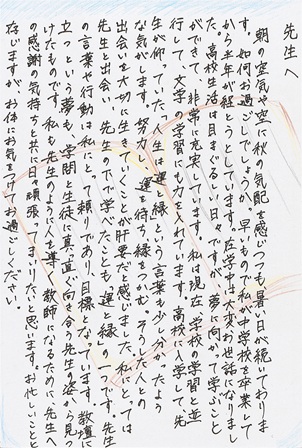 先生へ
朝の空気や空に秋の気配を感じつつも暑い日が続いておりま
す。如何お過ごしでしょうか。早いもので私が中学校を卒業して
から半年が経とうとしています。在学中は大変お世話になりまし
た。高校生活は目まぐるしい日々ですが、夢に向かって学ぶこと
ができて、非常に充実しています。私は現在学校の学習と並
行して、文学の学習にも力を入れています。高校へ入学して先
生が仰っていた、人生は運と縁という言葉も少し分かったよう
な気がします。努力して運を待ち、縁をつかむ。そうした人との
出会いを大切に生きていくことが肝要だと感じました。私にとっては
先生と出会い、先生の下で学べたことも、運と縁の一つです。先生
の言葉や行動は私にとって頼りであり、目標となっています。教壇に
立つという夢も、学問と生徒に真っ直ぐ向き合う先生の姿から見つ
けたものです。私も先生のように人を導く教師になるために、先生へ
の感謝の気持ちと共に日々頑張ってまいりたいと思います。お忙しいことと
存じますが、お体にお気をつけてお過ごしください。